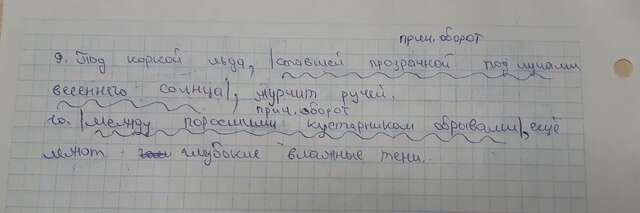 прич. оборот
9. Под коркой льда, |ставшей прозрачной под лучами
весеннего солнца|, журчит ручей.
прич. оборот
10. |между поросшими кустарником обрывами|, ещё
лежат глубокие влажные тени.